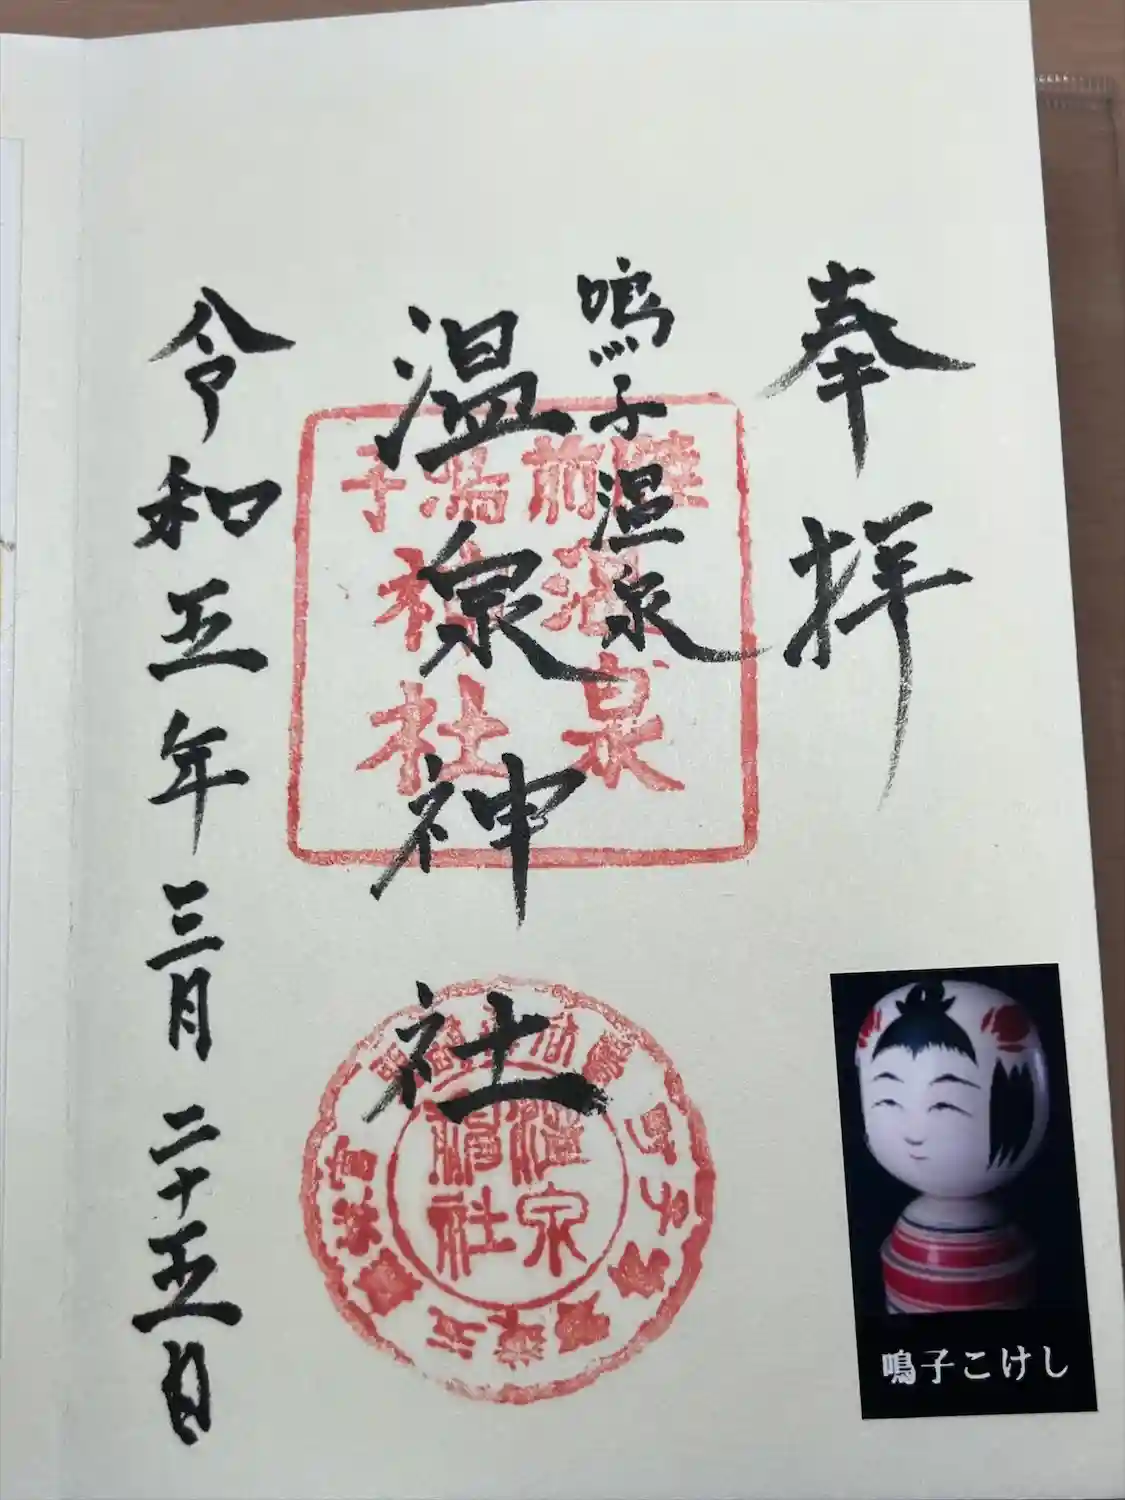 奉拝
鳴子温泉
温泉神社
令和五年三月二十五日
陸前
鳴子
温泉
神社
温泉
神社
鳴子こけし